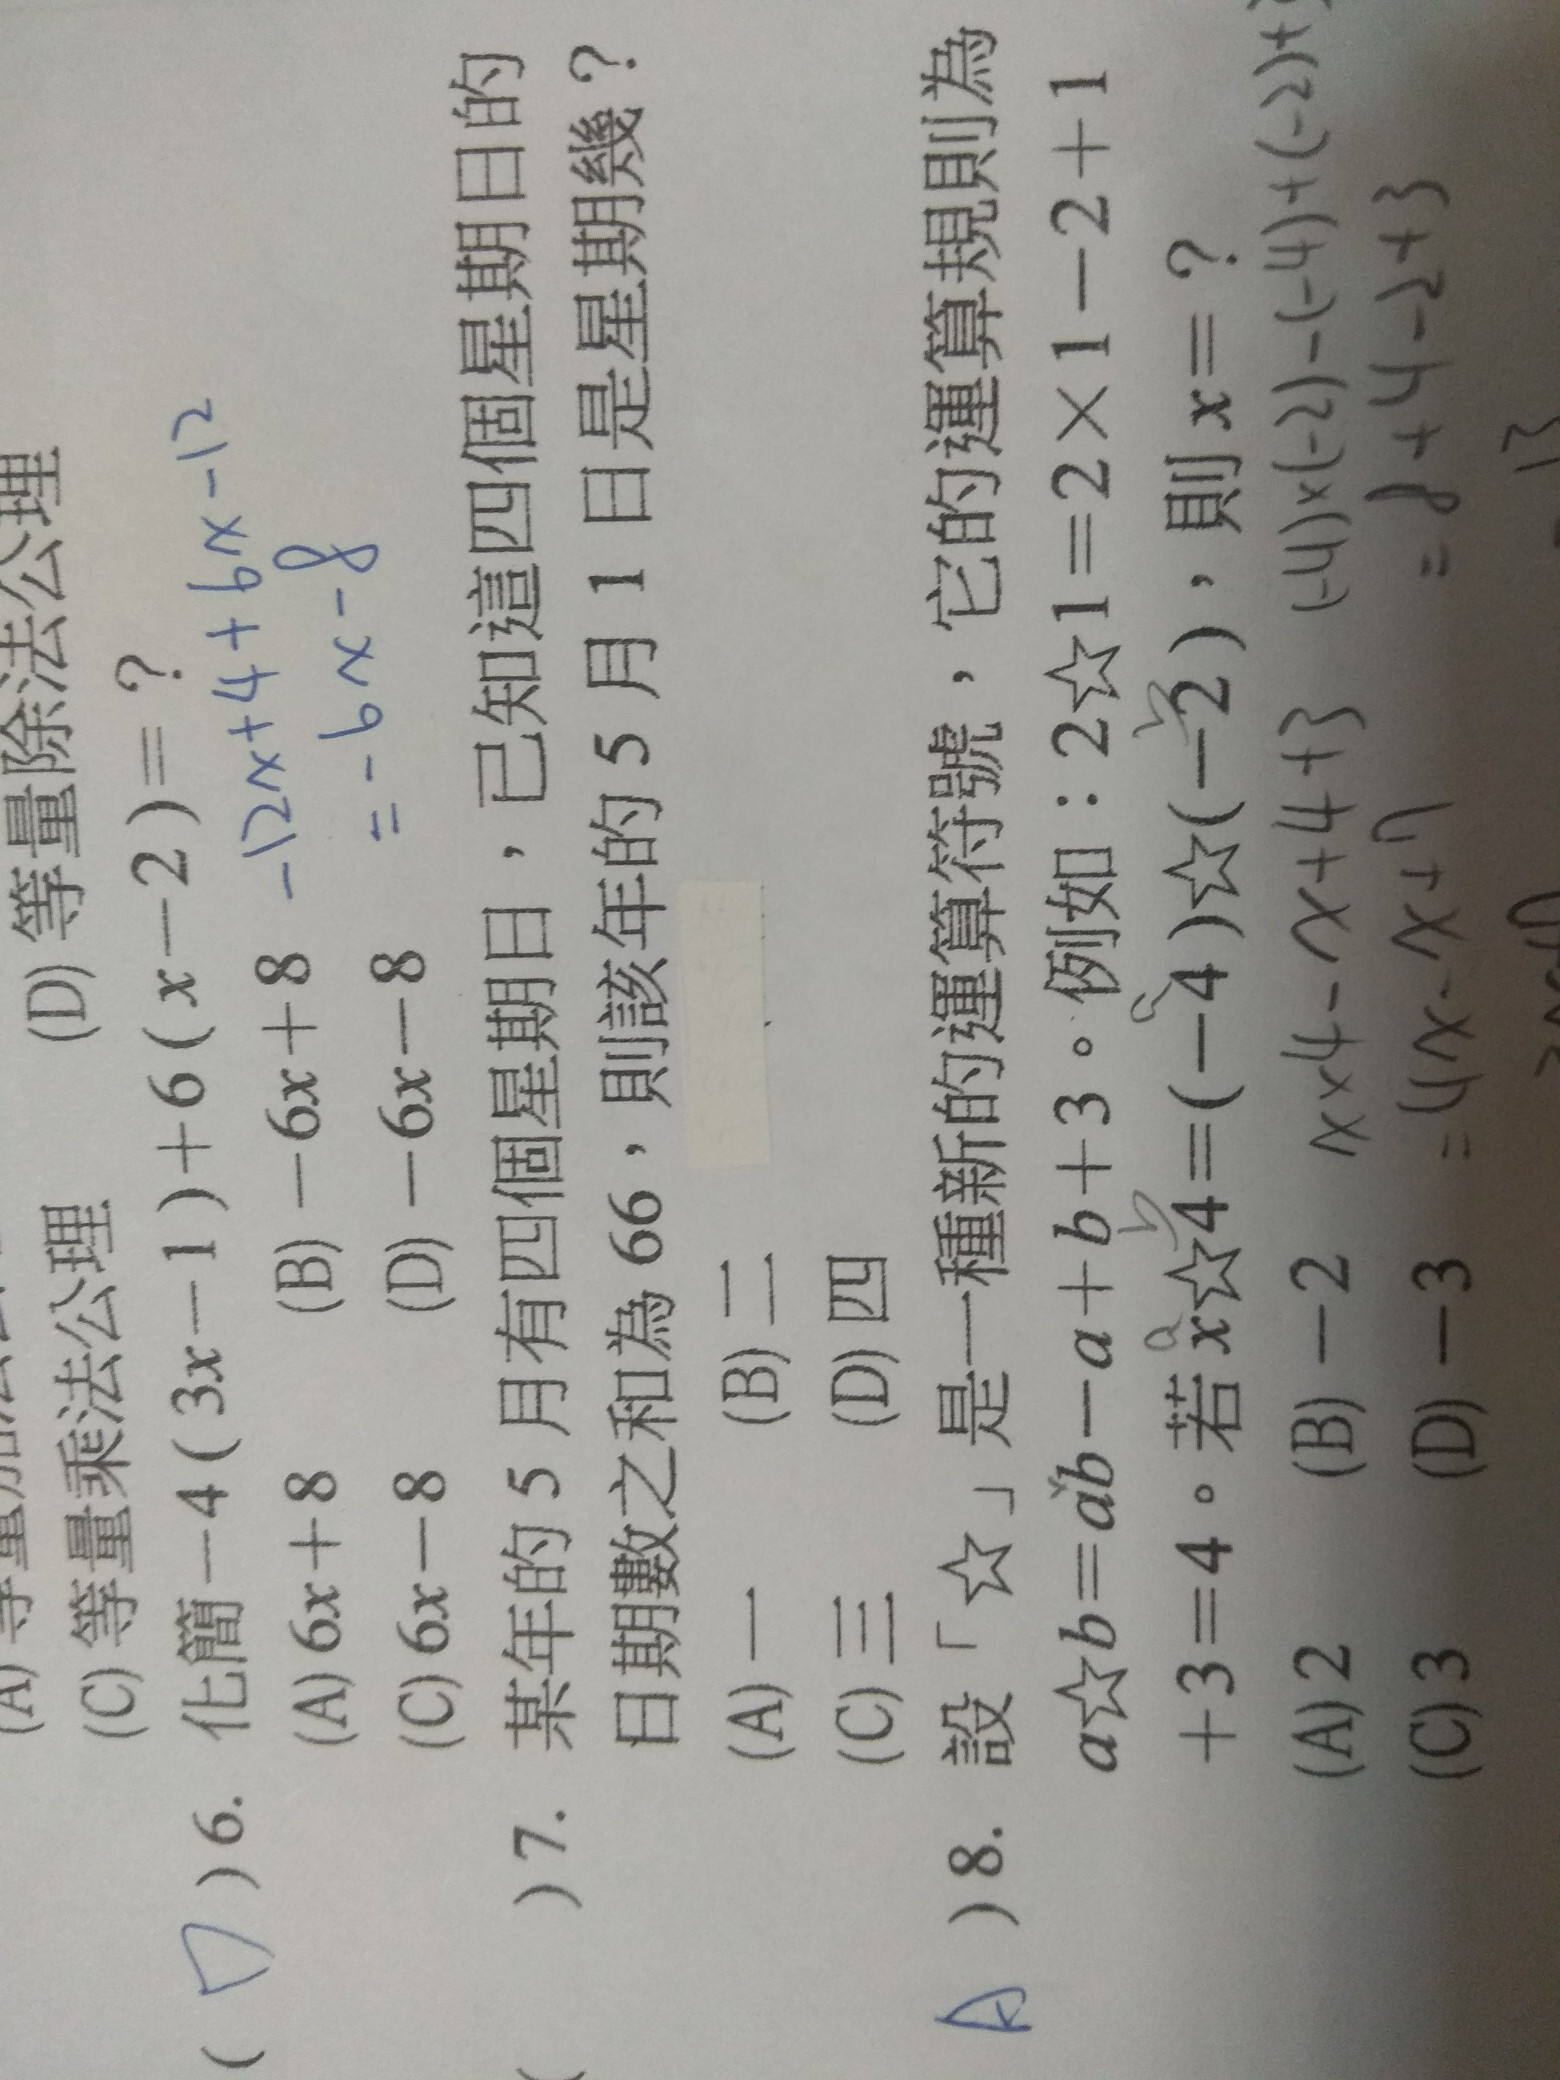 (D) 等量除法公理
(C) 等量乘法公理
( D ) 6. 化簡－4(3x－1)＋6(x－2)＝?
-12x+4+6x-12
(A) 6x＋8 (B) －6x＋8
= -6x-8
(C) 6x－8 (D) －6x－8
( ) 7. 某年的 5 月有四個星期日，已知這四個星期日的
日期數之和為 66，則該年的 5 月 1 日是星期幾？
(A) 一 (B) 二
(C) 三 (D) 四
A ) 8. 設「☆」是一種新的運算符號，它的運算規則為
a☆b＝ab－a＋b＋3。例如：2☆1＝2×1－2＋1
＋3＝4。若 x☆4＝(－4)☆(－2)，則 x＝?
a b a b
(A) 2 (B) －2 x×4-x+4+3 (-4)×(-2)-(-4)+(-2)+
(C) 3 (D) －3 =4x-x+7 =8+4-2+3